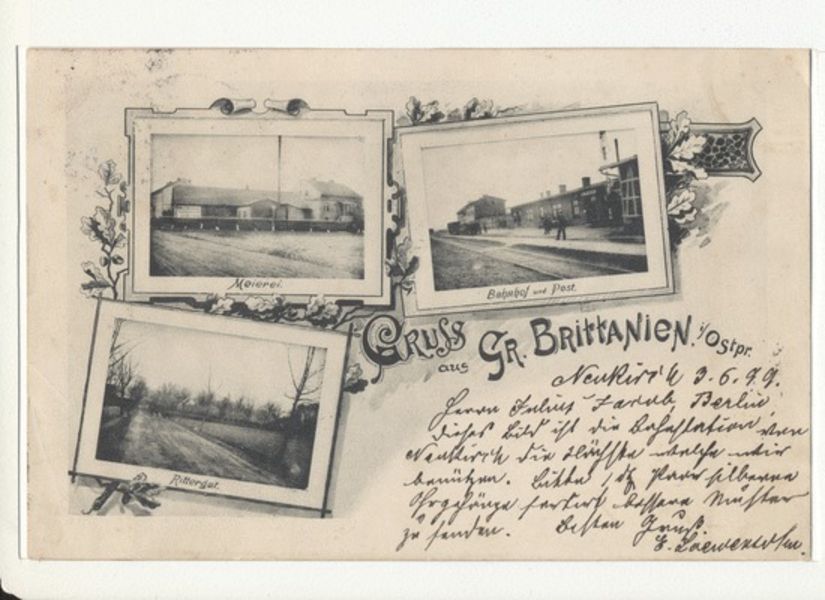 Meierei.
Bahnhof und Post.
Rittergut.
Gruss aus Gr. Brittanien. i/Ostpr.
Neukirch 3.6.99.
Herrn Julius Jacob, Berlin
dieses Bild ist die Bahnstation von
Neukirch die nächste welche wir
benützen. Bitte 1 dz Paar silberne
Ohrgehänge sofort bessere Muster
zu senden. Besten Gruß.